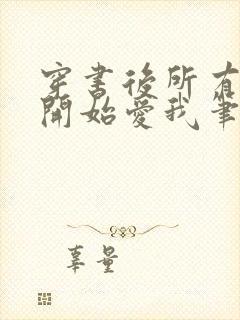 穿書後所有
開始愛我筆
辜量